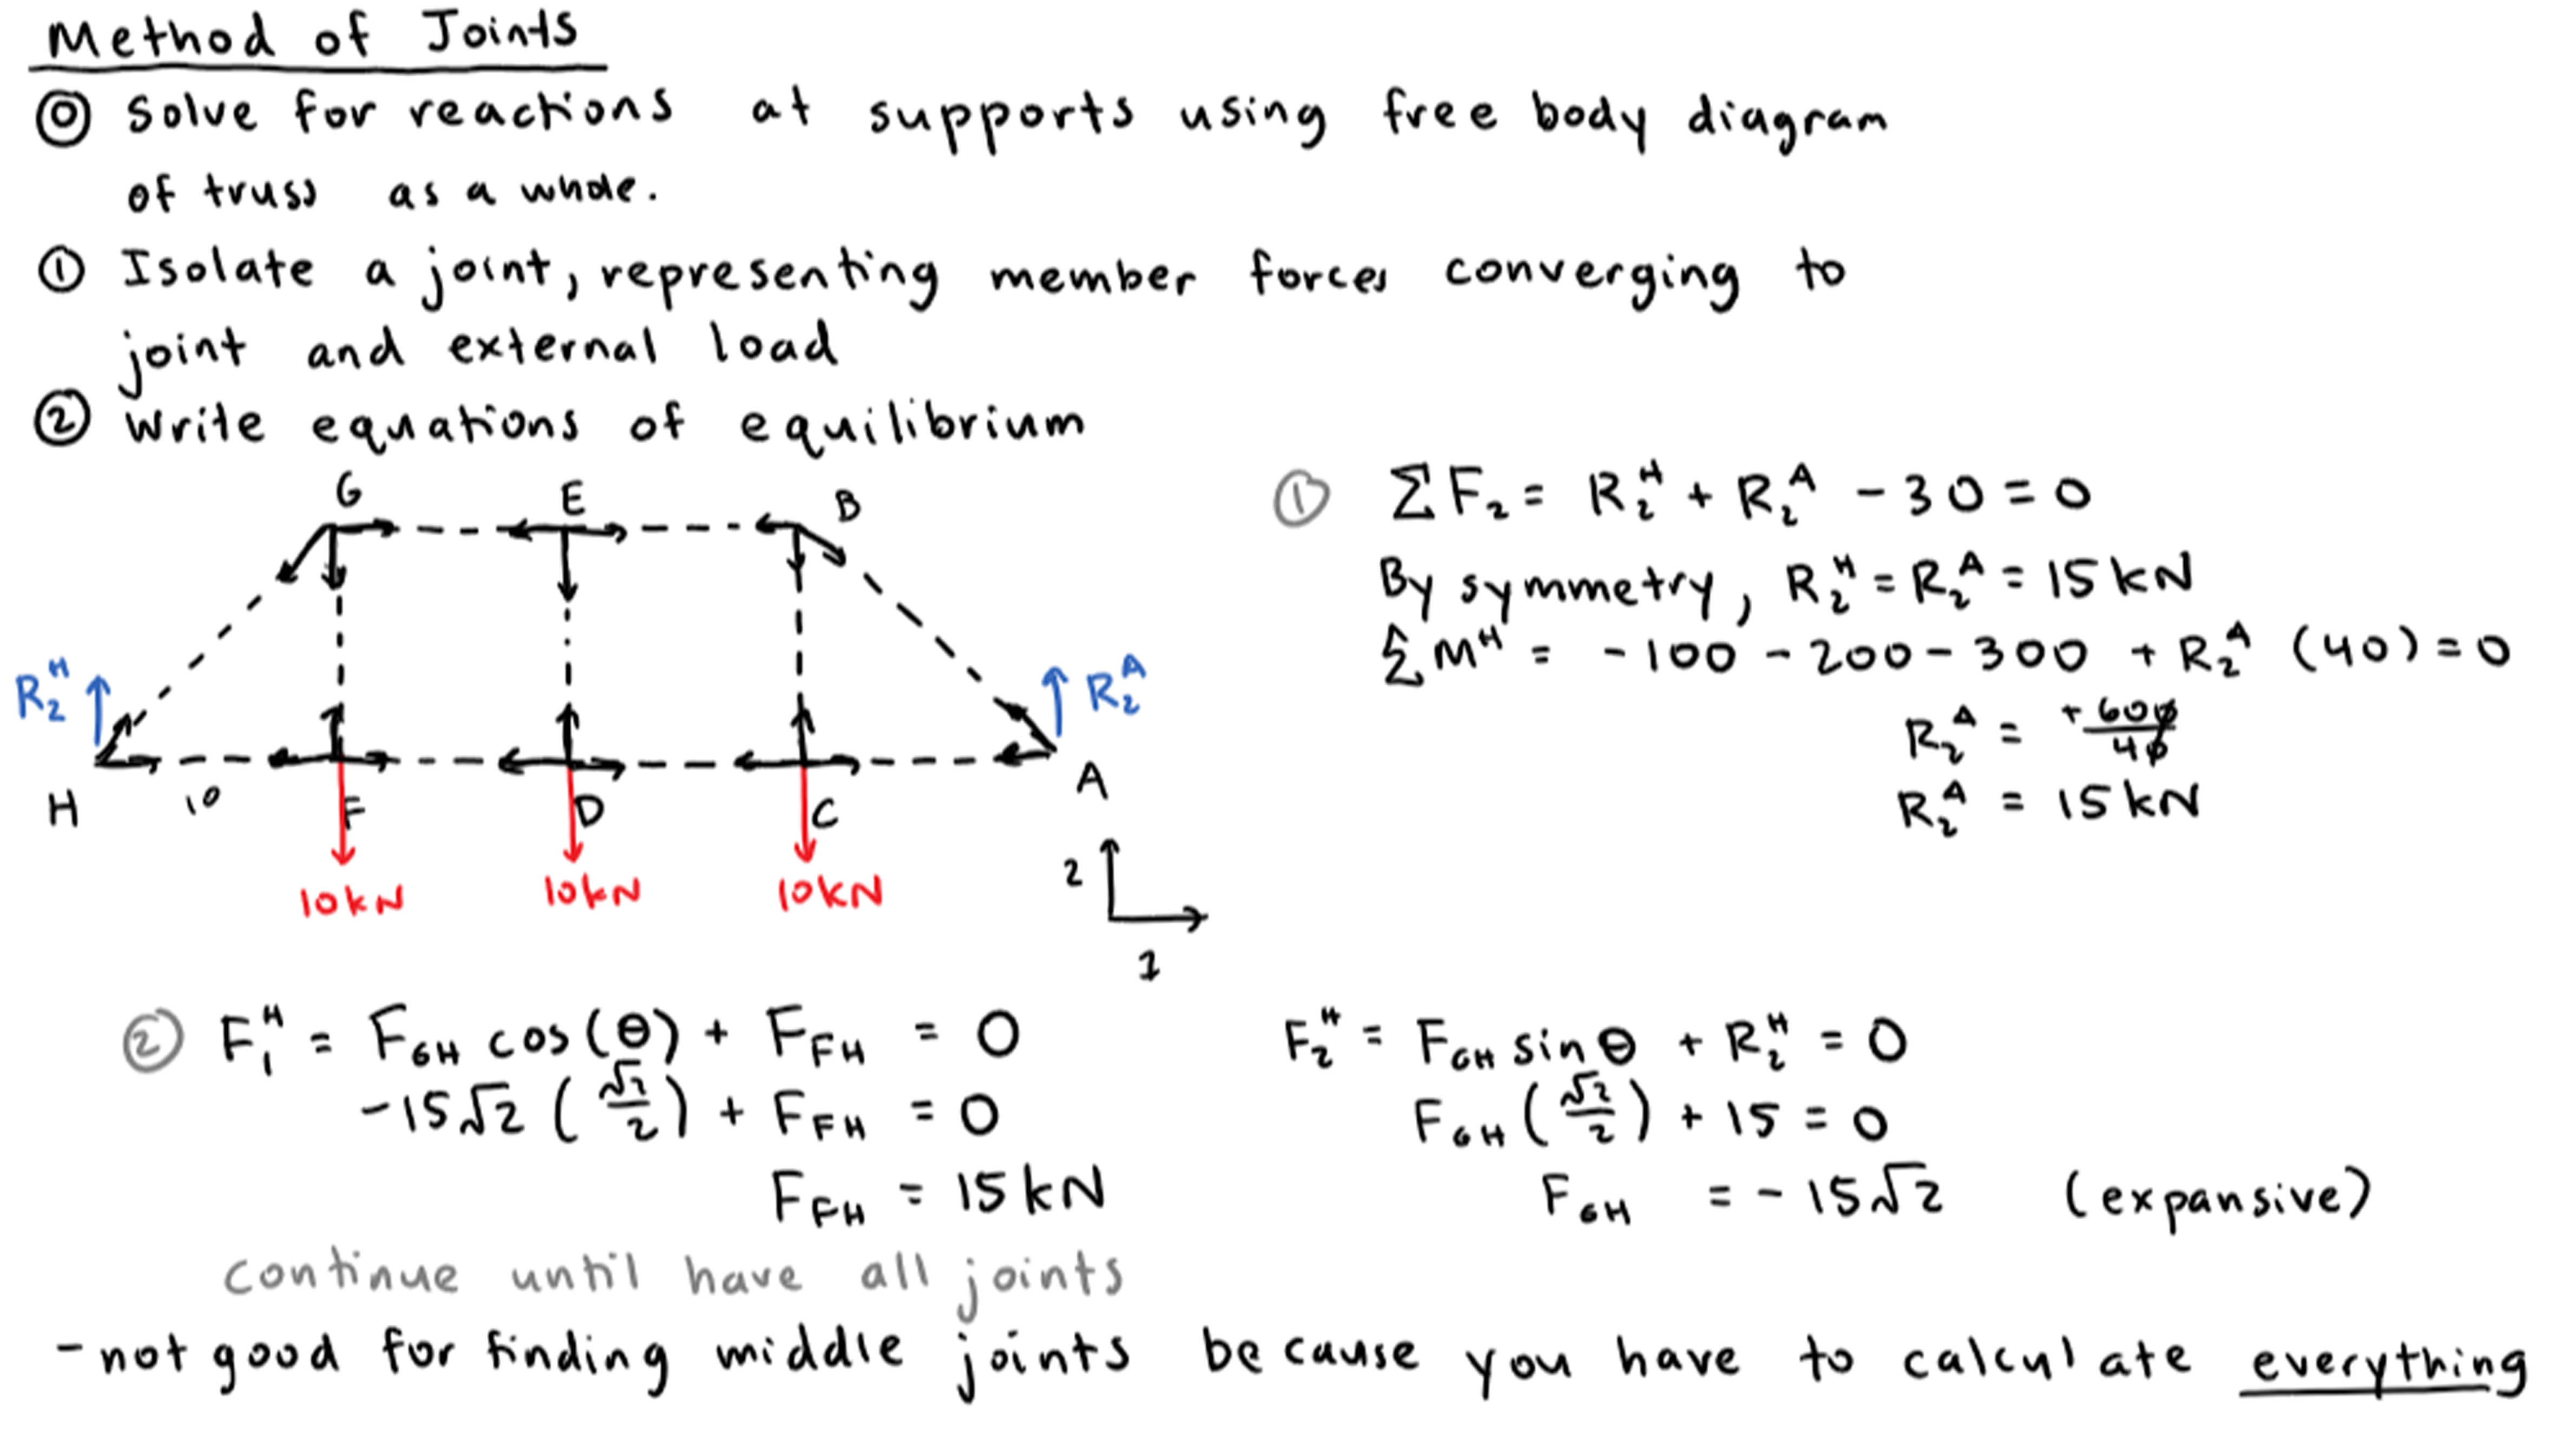 Method of Joints
⓪ Solve for reactions at supports using free body diagram
of truss as a whole.
① Isolate a joint, representing member forces converging to
joint and external load
② Write equations of equilibrium
G E B
R₂ᴴ R₂ᴬ
H 10 F D C A
10kN 10kN 10kN
2
1
① ΣF₂ = R₂ᴴ + R₂ᴬ - 30 = 0
By symmetry, R₂ᴴ = R₂ᴬ = 15 kN
ΣMᴴ = -100 - 200 - 300 + R₂ᴬ (40) = 0
R₂ᴬ = +600/40
R₂ᴬ = 15 kN
② F₁ᴴ = F_GH cos(θ) + F_FH = 0
-15√2 (√2/2) + F_FH = 0
F_FH = 15 kN
F₂ᴴ = F_GH sin θ + R₂ᴴ = 0
F_GH (√2/2) + 15 = 0
F_GH = -15√2 (expansive)
continue until have all joints
- not good for finding middle joints because you have to calculate everything